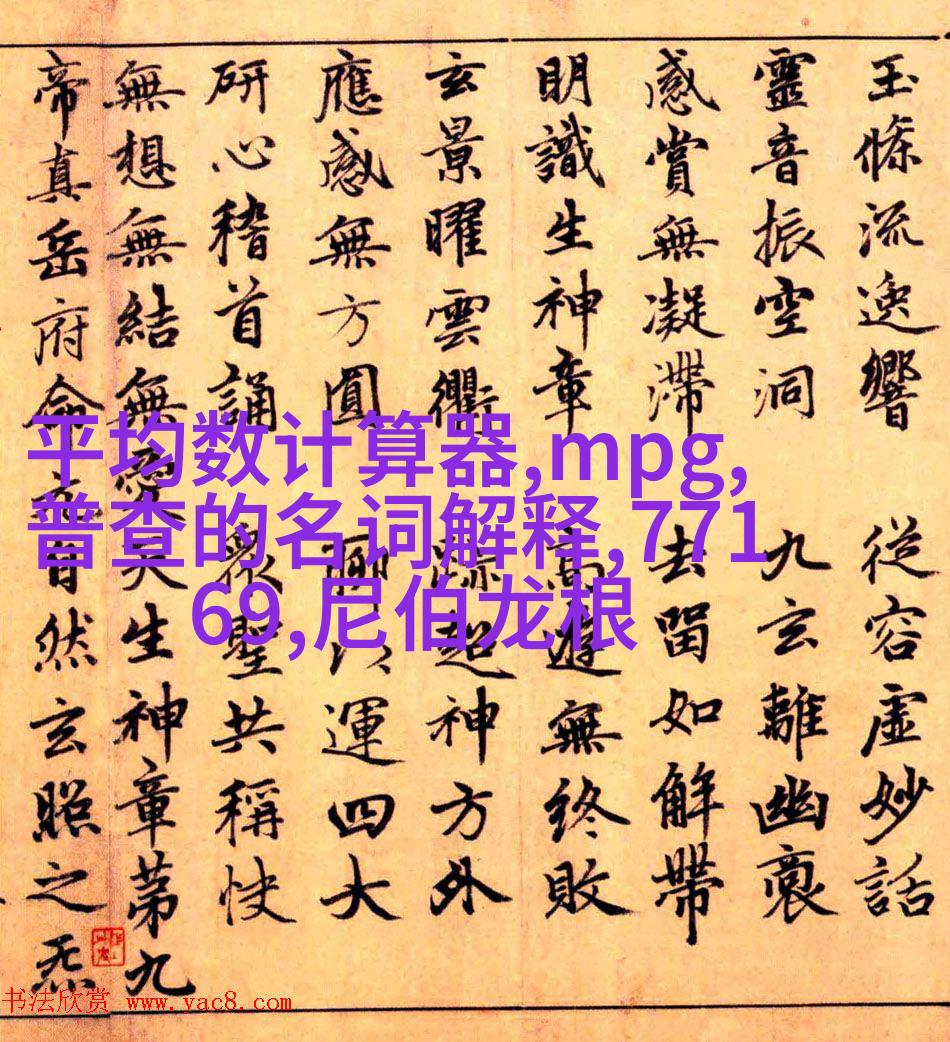 玉條流逸響 從容虛妙話
靈音振空洞 九玄離幽
感賞無凝滯 去留如解帶
明識生神章 高遊無終敗
玄景曜雲衢 超神方外
應感無方圓 運四大
研心稽首誦 衆聖共稱快
無想無結無愛天生神章第九
帝真岳府命 自然玄照之炁
平均数计算器,mpg,
普查的名词解释,771
69,尼伯龙根
书法欣赏 www.yac8.com